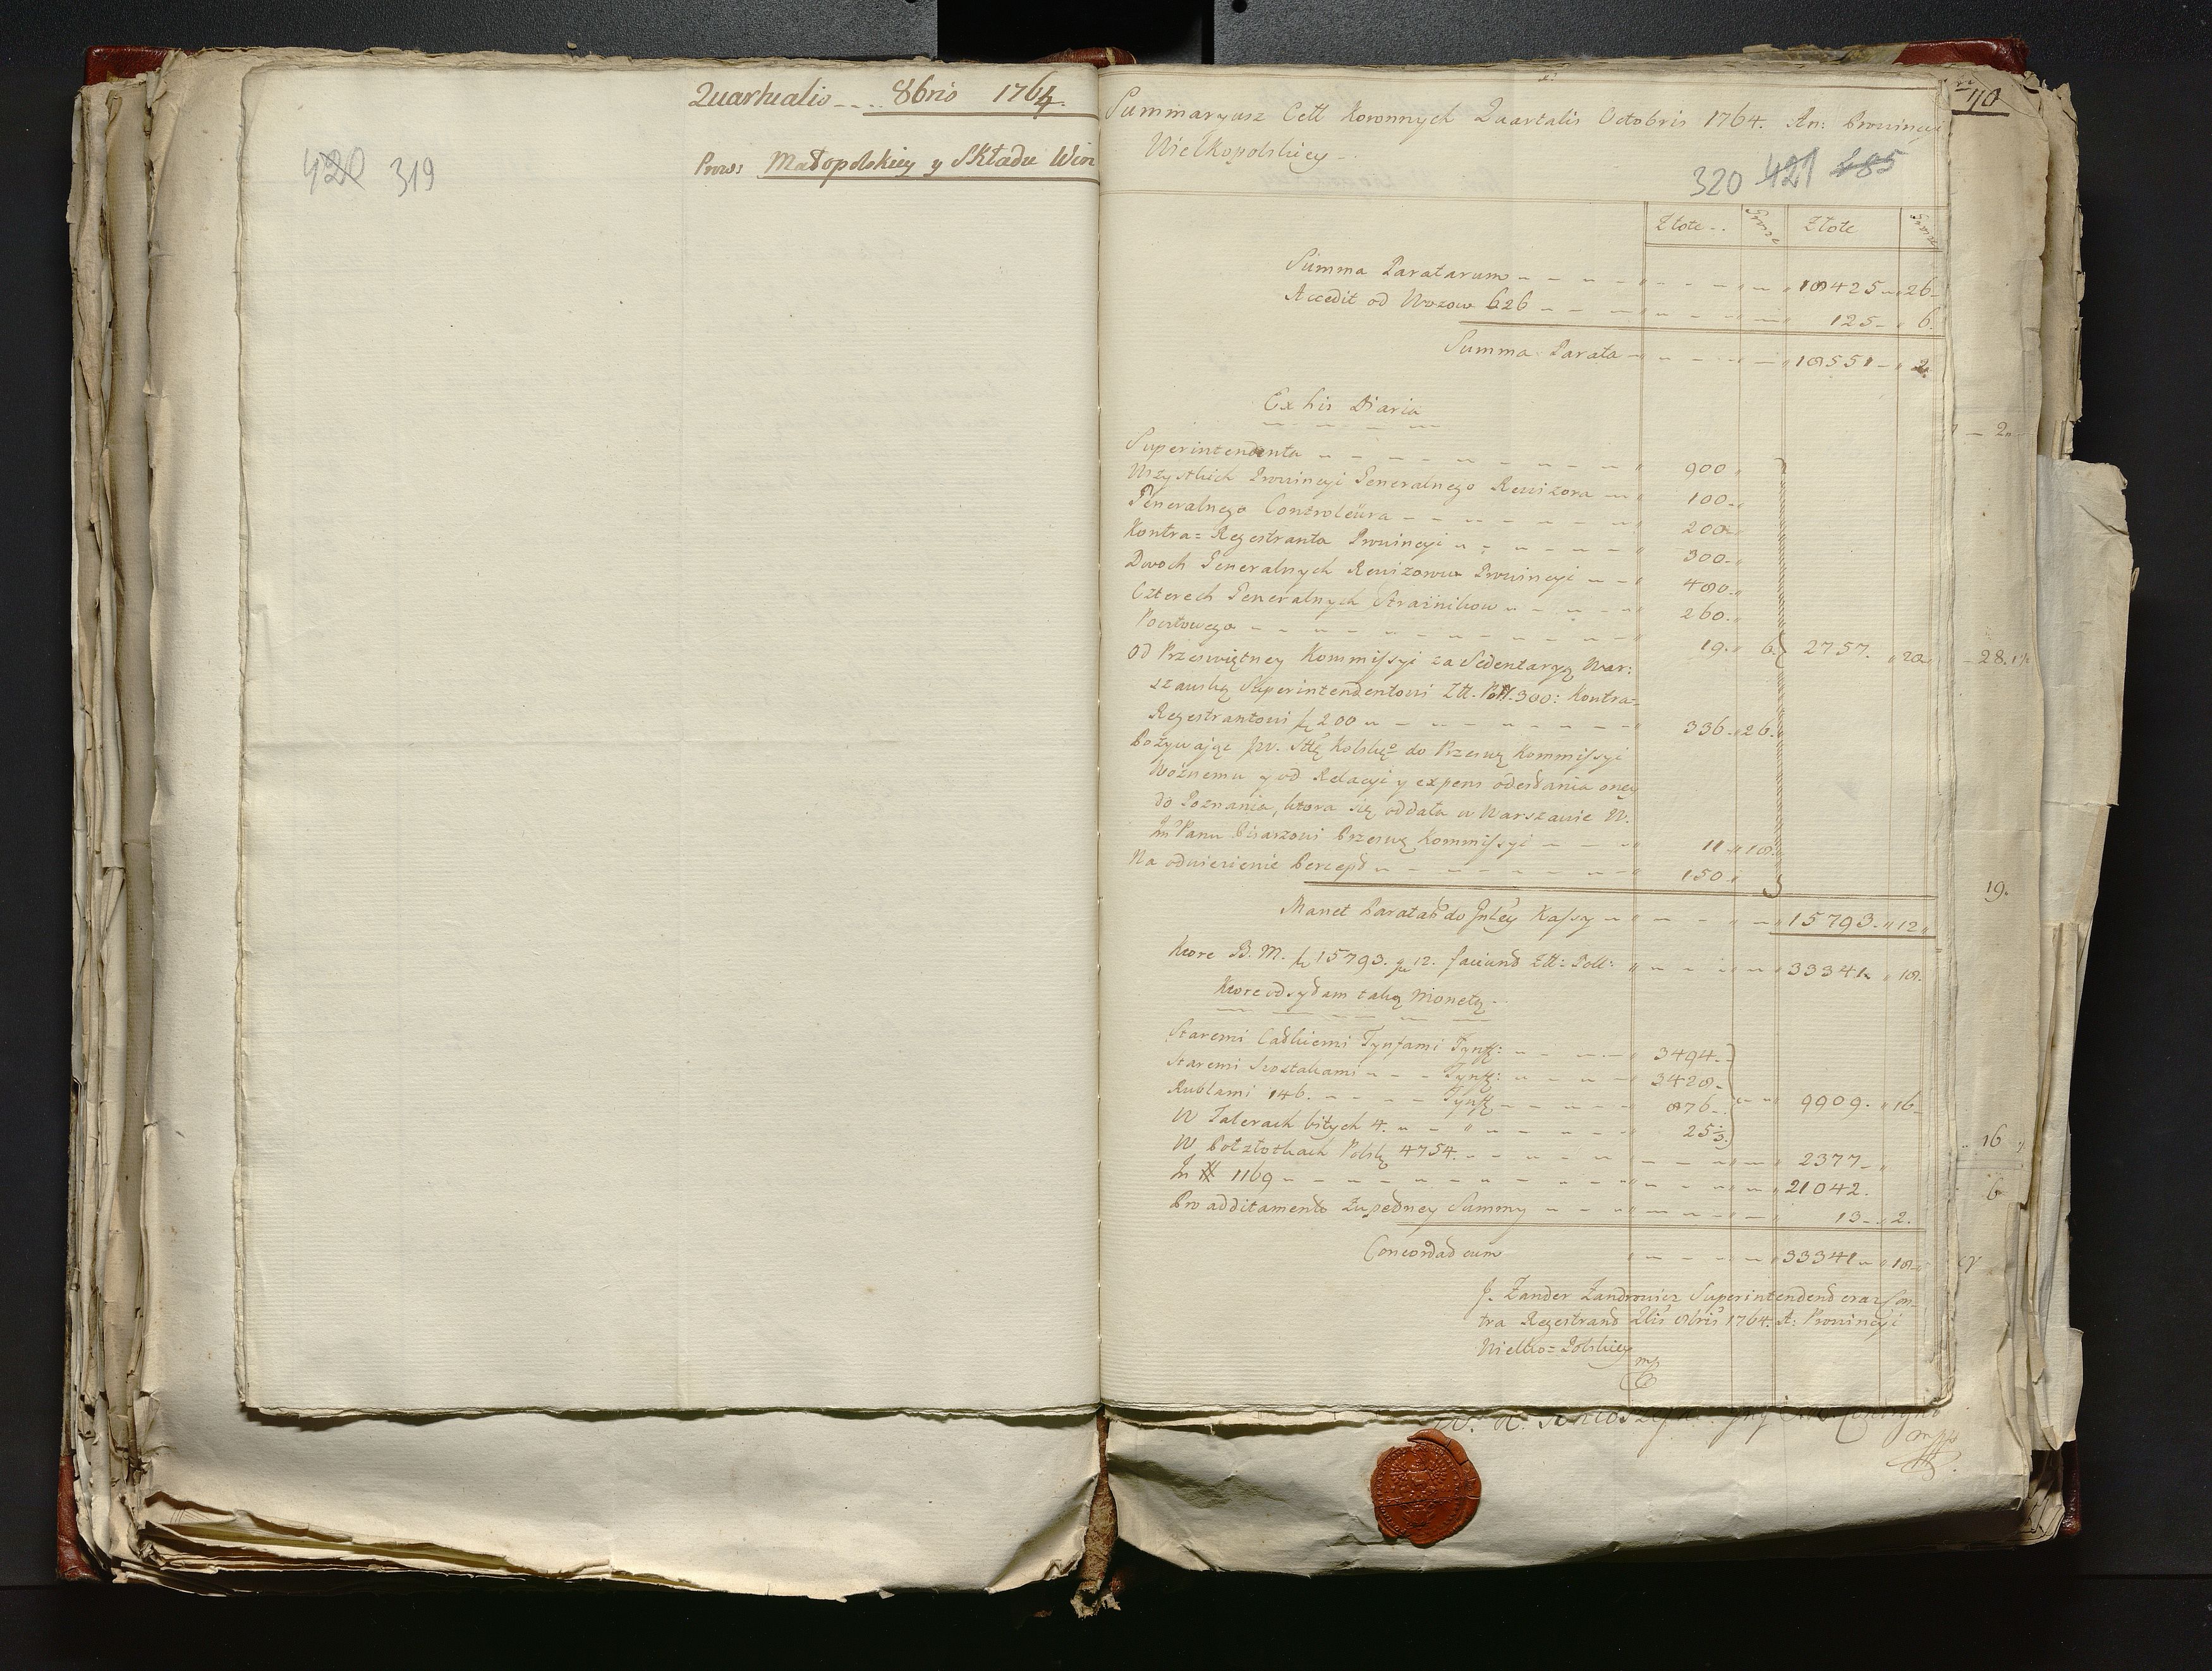 Quartualis _ .... 8bris 1764.
Prow: Małopolskiey y Składu Win
420 319
Summaryusz Cell Koronnych Quartalis Octobris 1764. An: Prowincyi
Wielkopolskiey
320 421 485
40
Złote Grosze Złote Grosze
Summa Paratarum 18425 26
Accedit od Wozow 626 125 6
Summa Parata 18551 2
Ex his Diaria
Superintendenta 900
Wszystkich Prowincyi Generalnego Rewizora 100
Generalnego Controleura 200
Kontra=Regestranta Prowincyi 300
Dwoch Generalnych Rewizorow Prowincyi 480
Czterech Generalnych Strażnikow 260
Pocztowego 19 6 2757 20
Od Przeswiętney Kommissyi za Sedentaryą War:
szawską Superintendentowi Zll. Poll. 300: Kontra=
Regestrantowi 200 336 26
do Przesw Kommissyi
Woźnemu y od Relacyi y expens odesłania oney
do Poznania, ktora się oddała w Warszawie W.
Jm Panu Pisarzowi Przesw Kommissyi 11 18
Na odwiezienie Percept 150
Manet Parata do Kassy 15793 12
Ktore B. M. 15793. gr 12. faciunt Zll: Poll: 33341 18
Ktore odsyłam taką Monetą
Staremi Całkiemi Tynfami Tynff: 3494
Staremi Szostakami Tynff: 3428
Rublami 146. Tynff 876 9909 16
W Talerach bitych 4. 25⅗
W Połzłotkach Polsk 4754. 2377
In # 1169 21042
Pro additamento Zupełney Summy 13 2
Concordat cum 33341 18
J. Zander Zandrowicz Superintendent oraz Con=
tra Regestrant 8bris 1764. A: Prowincyi
Wielko=Polskiey
mp
2
28
19
16
6
mpp